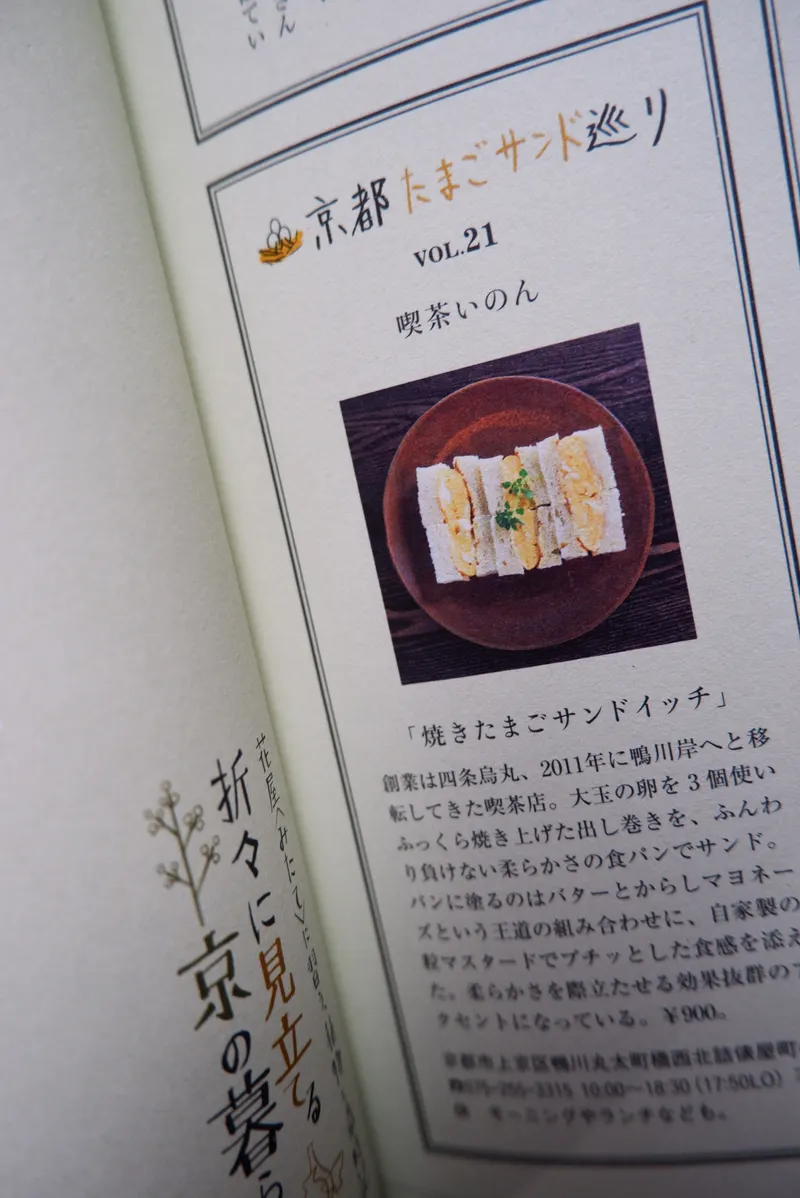 さん
てい
京都たまごサンド巡り
VOL.21
喫茶いのん
「焼きたまごサンドイッチ」
創業は四条烏丸、2011年に鴨川岸へと移
転してきた喫茶店。大玉の卵を3個使い
ふっくら焼き上げた出し巻きを、ふんわ
り負けない柔らかさの食パンでサンド。
パンに塗るのはバターとからしマヨネー
ズという王道の組み合わせに、自家製の
粒マスタードでプチッとした食感を添え
た。柔らかさを際立たせる効果抜群のア
クセントになっている。¥900。
京都市上京区鴨川丸太町橋西北詰俵屋町
075-255-3315 10:00〜18:30 (17:50LO)
休 モーニングやランチなども。
花屋〈みたて〉に習う植物
折々に見立てる
京の暮ら